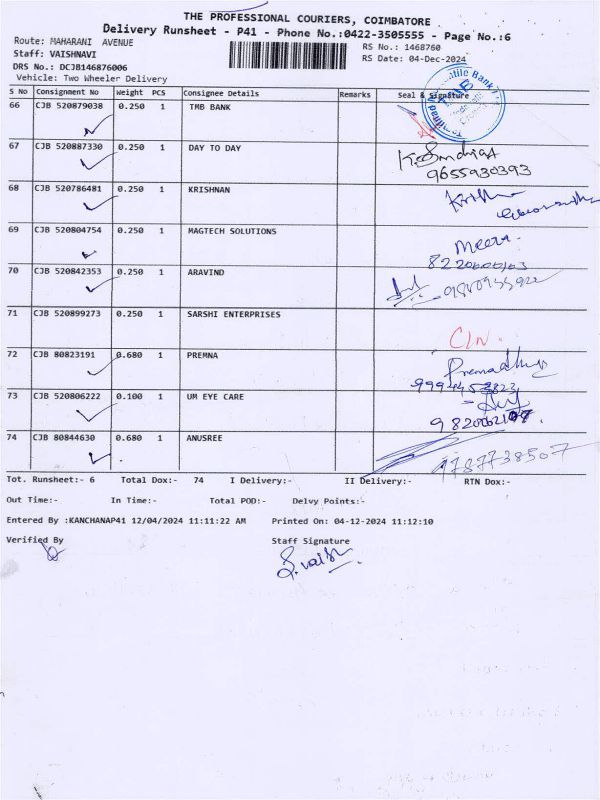 THE PROFESSIONAL COURIERS, COIMBATORE
Delivery Runsheet - P41 - Phone No.:0422-3505555 - Page No.:6
Route: MAHARANI AVENUE
RS No.: 1468760
Staff: VAISHNAVI
RS Date: 04-Dec-2024
DRS No.: DCJB146876006
Vehicle: Two Wheeler Delivery
S No Consignment No Weight PCS Consignee Details Remarks Seal & Signature
66 CJB 520879038 0.250 1 TMB BANK
67 CJB 520887330 0.250 1 DAY TO DAY
9655930393
68 CJB 520786481 0.250 1 KRISHNAN
69 CJB 520804754 0.250 1 MAGTECH SOLUTIONS
Meera.
70 CJB 520842353 0.250 1 ARAVIND
71 CJB 520899273 0.250 1 SARSHI ENTERPRISES
C/N.
72 CJB 80823191 0.680 1 PREMNA
73 CJB 520806222 0.100 1 UM EYE CARE
74 CJB 80844630 0.680 1 ANUSREE
9787738507
Tot. Runsheet:- 6 Total Dox:- 74 I Delivery:- II Delivery:- RTN Dox:-
Out Time:- In Time:- Total POD:- Delvy Points:-
Entered By :KANCHANAP41 12/04/2024 11:11:22 AM Printed On: 04-12-2024 11:12:10
Verified By Staff Signature
S.vaish